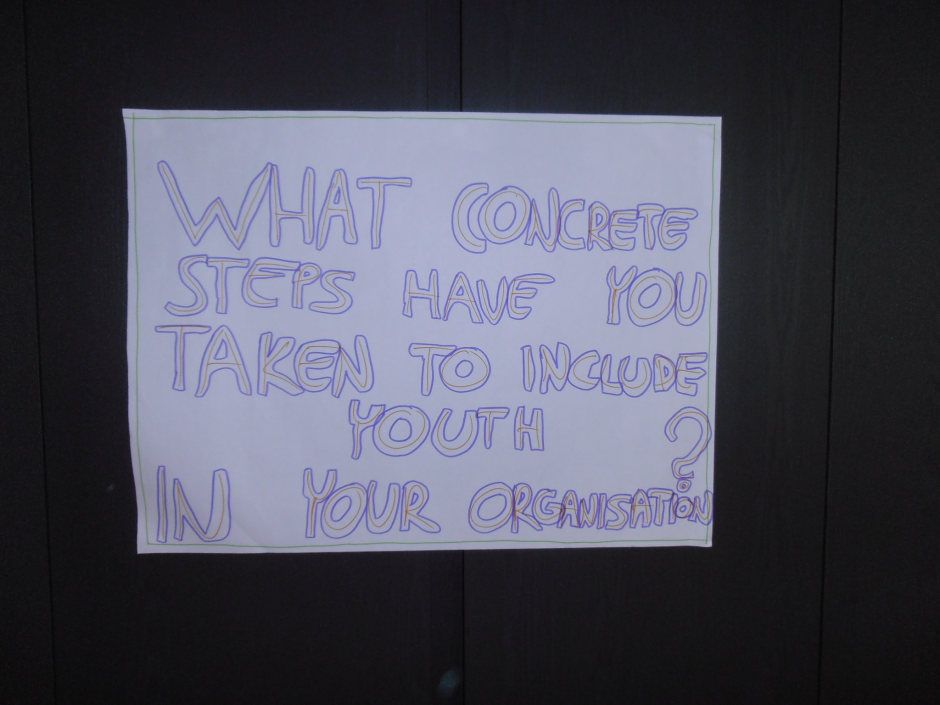 WHAT CONCRETE
STEPS HAVE YOU
TAKEN TO INCLUDE
YOUTH
IN YOUR ORGANISATION?